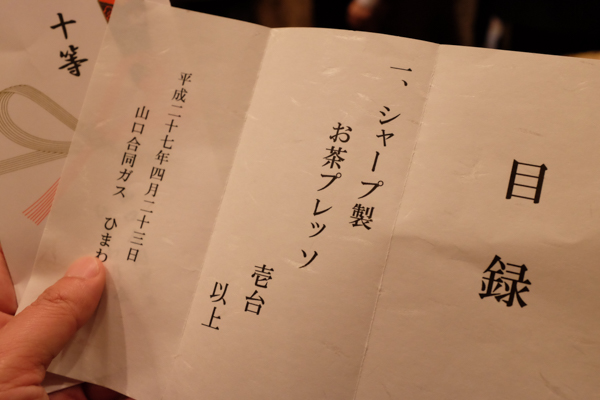 目録
一、シャープ製
お茶プレッソ
壱台
以上
平成二十七年四月二十三日
山口合同ガス ひまわ
十等